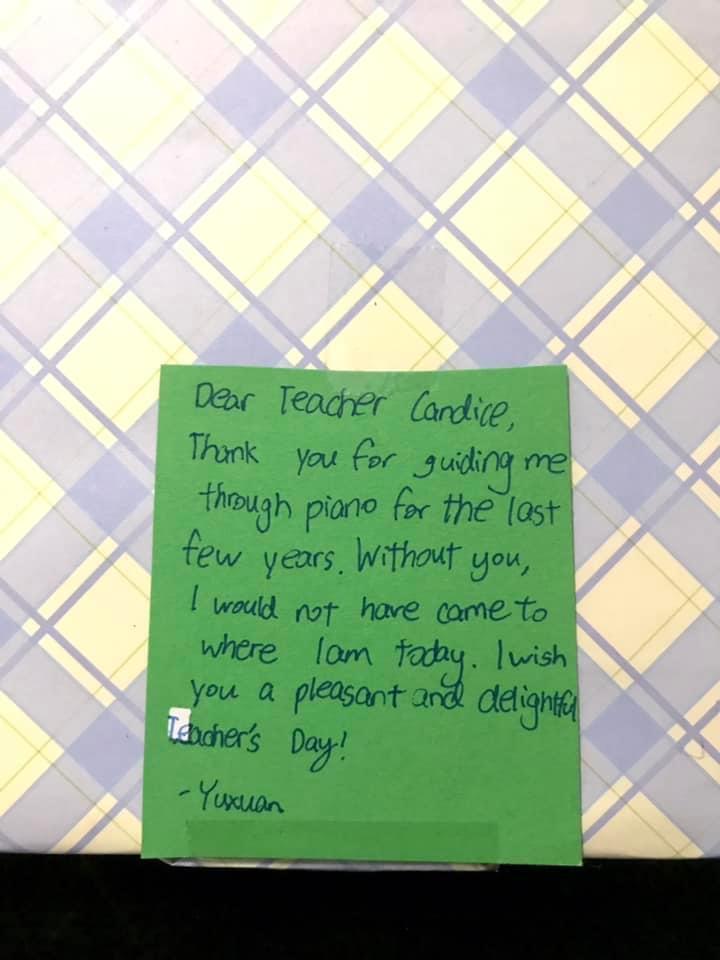 Dear Teacher Candice,
Thank you for guiding me
through piano for the last
few years. Without you,
I would not have came to
where I am today. I wish
you a pleasant and delightful
Teacher's Day!
- Yuxuan